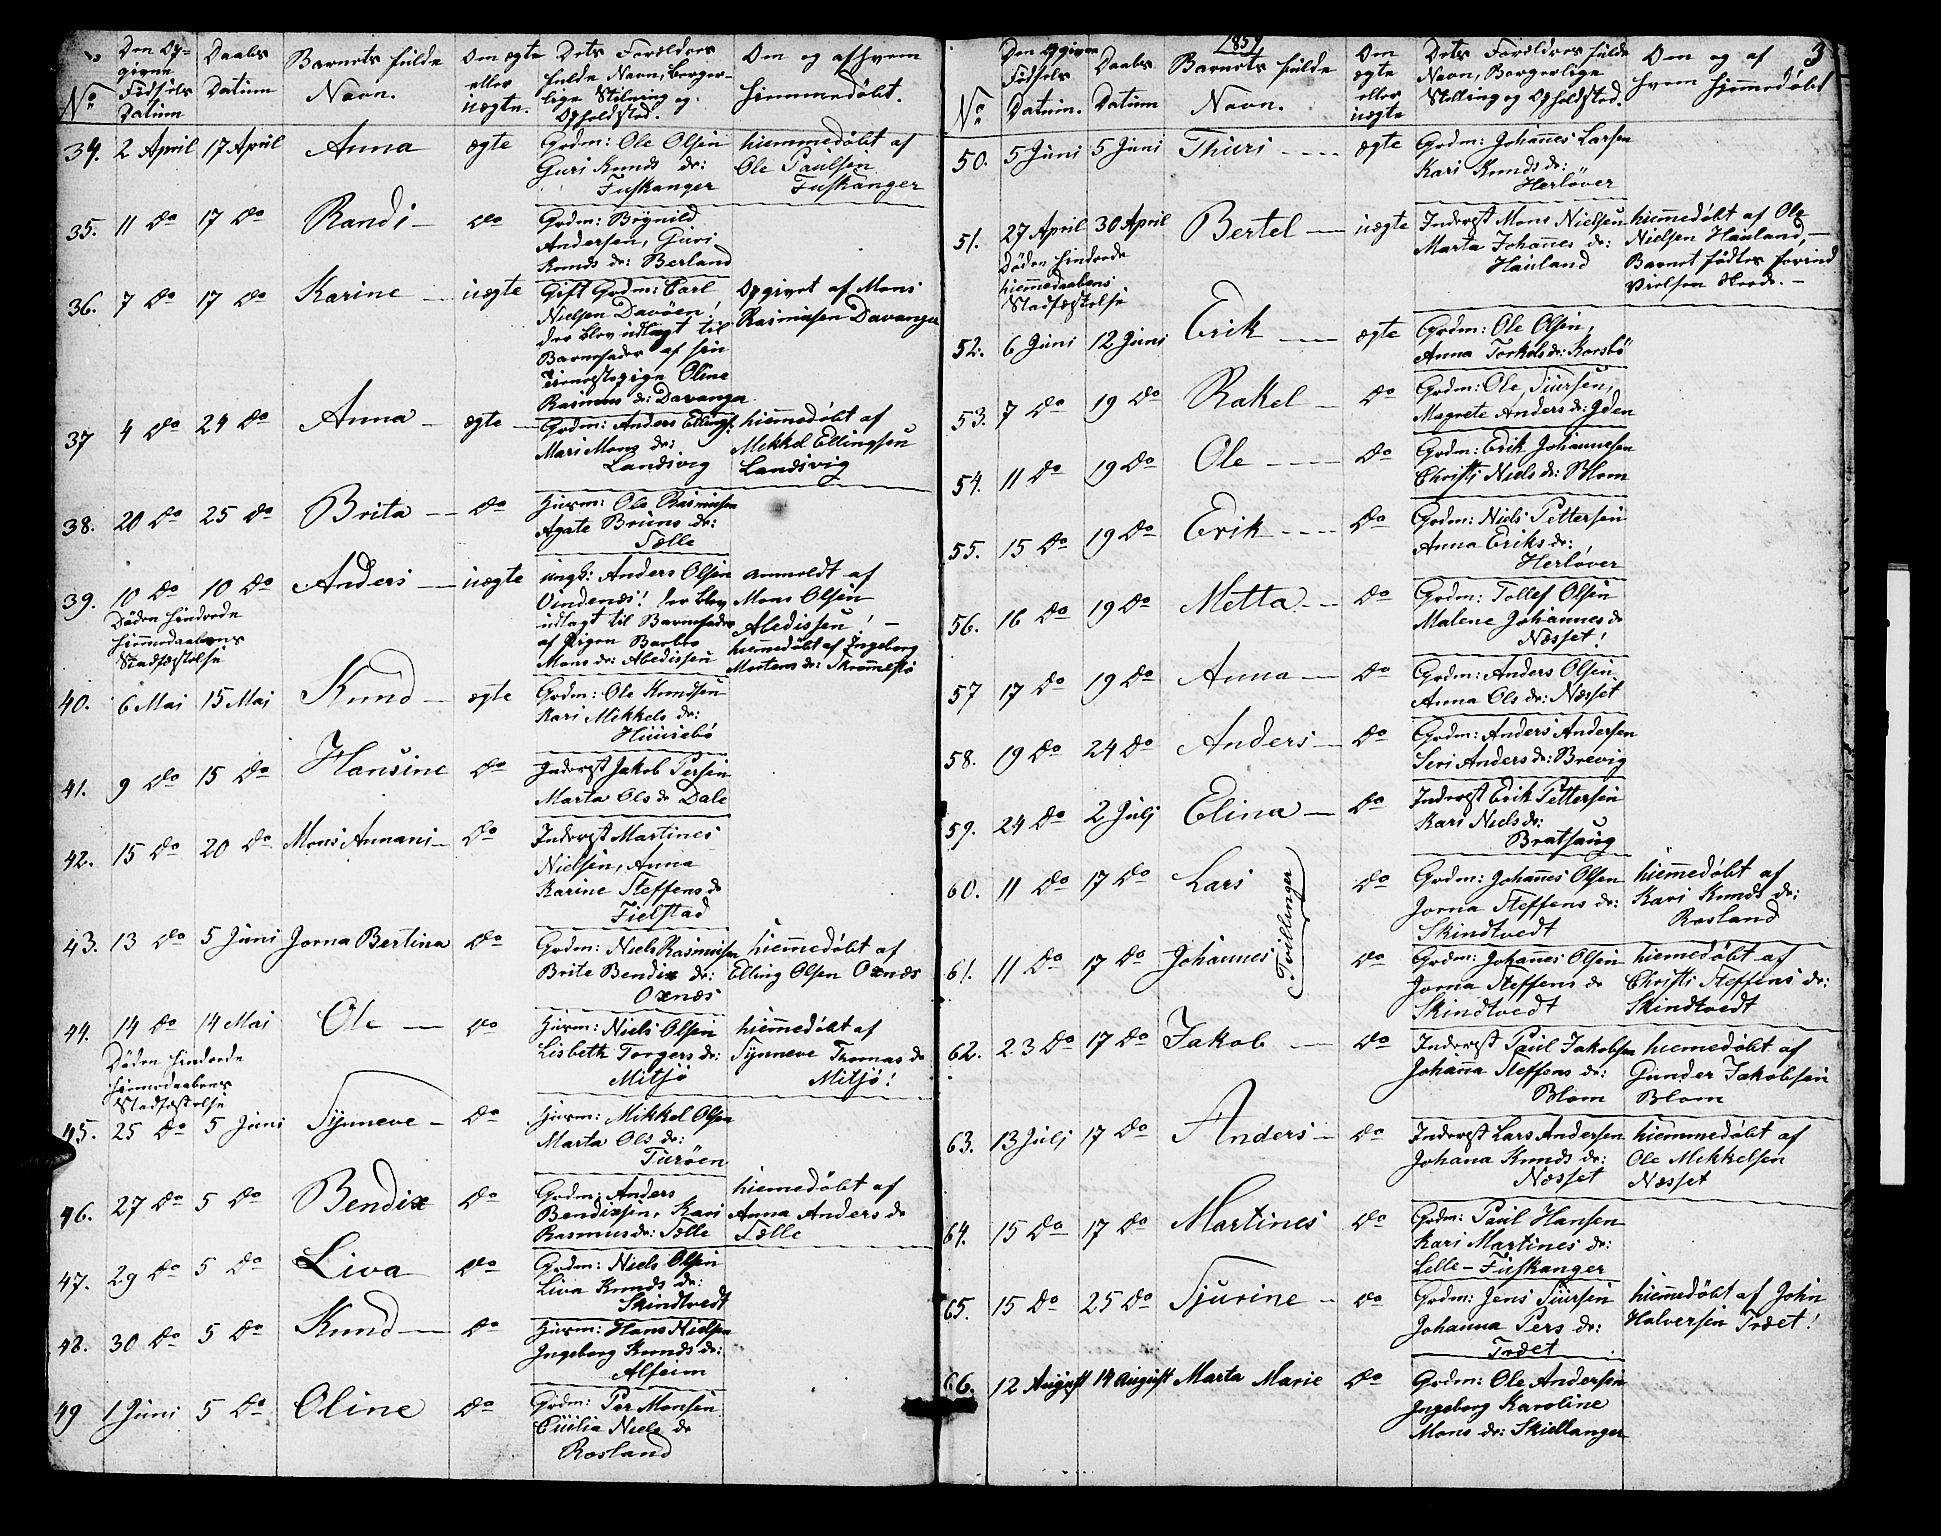 No
Den Op-
givne
Fødsels
Datum
Daabs
Datum
Barnets fulde
Navn.
Om ægte
eller
uægte.
Dets Forældres
fulde Navn, borger-
lige Stilling og
Opholdsted.
Om og af hvem
hjemmedøbt.
34. 2 April 17 April Anna ægte
Grdm: Ole Olsen
Guri Knuds dr:
Fuskanger
hiemmedøbt af
Ole Paulsen
Fuskanger
35. 11 do 17 do Randi – do
Grdm: Brynild
Andersen, Guri
Knuds dr: Berland
36. 7 do 17 do Karine – uægte
Gift Grdm: Carl
Nielsen Davøen!
der blev udlagt til
Barnefader af sin
Tienestepige Oline
Rasmus dr: Davanger
Opgivet af Mons
Rasmusen Davanger
37 4 do 24 do Anna – ægte –
Grdm: Anders Ellings.
Mari Mons dr:
Landsvig
hiemedøbt af
Mikkel Ellingsen
Landsvig
38. 20 do 25 do Brita – do
Huusm: Ole Rasmusen
Agate Bruns dr:
Tælle
39. 10 do 10 do Anders – uægte
Døden hindrede
Hjemmedaabens
Stadfæstelse
ungk: Anders Olsen
Vindenæs! der blev
udlagt til Barnefader
af Pigen Barbro
Mons dr: Abedissen
anmeldt af
Mons Olsen
Abedissen! –
hiemedøbt af Ingeborg
Mortens dr: Skrømestø
40. 6 Mai 15 Mai Knud – ægte
Grdm: Ole Knudsen
Kari Mikkels dr:
Huusebø
41. 9 do 15 do Hansine do
Inderst Jakob Persen
Marta Ols dr Dale
42. 15 do 20 do Mons Annani – do
Inderst Martines
Nielsen, Anna
Karine Steffens dr
Fielstad
43. 13 do 5 Juni Jorna Bertina do
Grdm: Niels Rasmusen
Brite Bendix dr:
Oxnæs
hiemmedøbt af
Elling Olsen Oxnæs
44. 14 do 14 Mai Ole – do
Døden hindrede
Hjemmedaabens
Stadfæstelse
Huusm: Niels Olsen
Lisbeth Torgers dr:
Mitsjø
hiemmedøbt af
Synneve Thomas dr
Mitsjø!
45. 25 do 5 Juni Synneve – do
Huusm: Mikkel Olsen
Marta Ols dr:
Turøen
46. 27 do 5 do Bendix do
Grdm: Anders
Bendixsen, Kari
Rasmus dr: Tælle
hiemedøbt af
Anna Anders dr
Tælle
47. 29 do 5 do Liva do
Grdm: Niels Olsen
Liva Knuds dr:
Skindtvedt
48. 30 do 5 do Knud – do
Huusm: Hans Nielsen
Ingeborg Knuds dr:
Alfeim
49 1 Juni 5 do Oline do
Grdm: Per Monsen
Cicilia Niels dr
Rosland
1859
3
No
Den opgivne
Fødsels
Datum.
Daabs
Datum
Barnets fulde
Navn.
Om
ægte
eller
uægte
Dets Forældres fulde
Navn, Borgerlige
Stilling og Opholdsted.
Om og af
hvem hjemedøbt
50. 5 Juni 5 Juni Thuri – – – ægte
Grdm: Johannes Larsen
Kari Knuds dr:
Herløver
51. 27 April 30 April Bertel – uægte
Døden hindrede
hiemmedaabens
Stadfæstelse
Inderst Mons Nielsen
Marta Johannes dr:
Hauland
hiemedøbt af Ole
Nielsen Hauland, –
Barnet fødtes forind
Vielsen skede. –
52. 6 Juni 12 Juni Erik – ægte
Grdm: Ole Olsen,
Anna Torkels dr: Korsbø
53. 7 do 19 do Rakel – do
Grdm: Ole Siursen,
Magrete Anders dr: Yden
54. 11 do 19 do Ole – – – do
Grdm: Erik Johannesen
Christi Niels dr: Blom
55. 15 do 19 do Erik – – – do
Grdm: Niels Pettersen
Anna Eriks dr:
Herløver
56. 16 do 19 do Metta – – do
Grdm: Tollef Olsen
Malene Johannes dr
Næsset!
57 17 do 19 do Anna – do
Grdm: Anders Olsen
Anna Ols dr: Næsset
58. 19 do 24 do Anders – do
Grdm: Anders Andersen
Seri Anders dr: Brevig
59. 24 do 2 Julj Elina – do
Inderst Erik Pettersen
Kari Niels dr:
Bratsaug
60. 11 do 17 do Lars do
Tvillinger
Grdm: Johannes Olsen
Jorna Steffens dr:
Skindtvedt
hiemmedøbt af
Kari Knuds dr:
Rosland
61. 11 do 17 do Johannes do
Grdm: Johannes Olsen
Jorna Steffens dr
Skindtvedt
hiemedøbt af
Christi Steffens dr:
Skindtvedt
62. 23 do 17 do Jakob – do
Inderst Paul Jakobsen
Johanna Steffens dr:
Blom
hiemedøbt af
Gunder Jakobsen
Blom
63. 13 Julj 17 do Anders – do
Inderst Lars Andersen
Johana Knuds dr:
Næsset
hiemmedøbt af
Ole Mikkelsen
Næsset
64. 15 do 17 do Martines do
Grdm: Paul Hansen
Kari Martines dr:
Lille-Fuskanger
65. 15 do 25 do Sjurine – do
Grdm: Jens Siursen
Johanna Pers dr:
Træet
hiemmedøbt af John
Halversen Træet!
66. 12 August 14 august Marta Marie do
Grdm: Ole Andersen
Ingeborg Karoline
Mons dr: Skiellanger